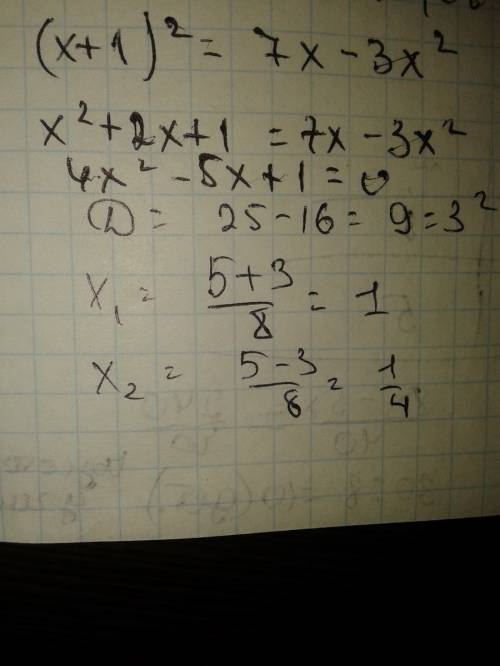 (x+1)² = 7x - 3x²
x² + 2x + 1 = 7x - 3x²
4x² - 5x + 1 = 0
D = 25 - 16 = 9 = 3²
x₁ = (5+3)/8 = 1
x₂ = (5-3)/8 = 1/4